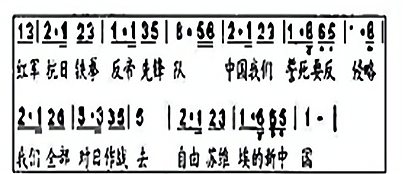 13|2·1 23|1·1 35|6·56|2·1 23|1·6 65|
红军 抗日 铁拳 反帝 先锋 队 中国我们 誓死要反 侵略
2·1 26|5·3 35|5 |2·1 23|1·6 65|1-|
我们 全部 对日作战 去 自由 苏维 埃的新中 国